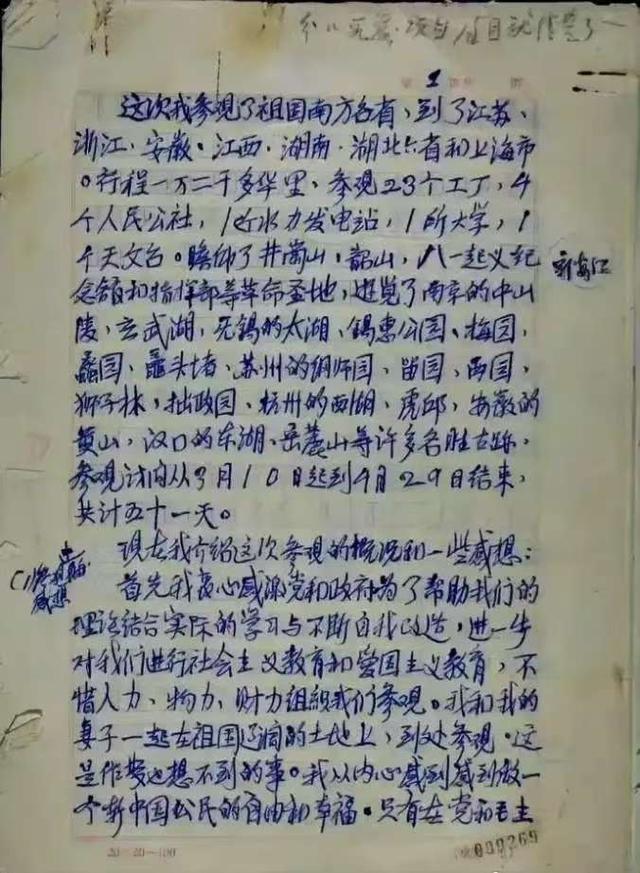 1
这次我参观了祖国南方各省，到了江苏、
浙江、安徽、江西、湖南、湖北六省和上海市
。行程一万二千多华里、参观23个工厂，4
个人民公社，1所水力发电站，1所大学，1
个天文台。瞻仰了井崗山，韶山，八一起义纪
念館和指挥部等革命圣地，遊览了南京的中山
陵，玄武湖，无锡的太湖、锡惠公园、梅园，
蠡园、黿头渚、苏州的网师园、留园、西园，
狮子林，拙政园、杭州的西湖、虎邱，安徽的
黄山，汉口的东湖、岳麓山等许多名胜古跡，
参观时间从3月10日起到4月29日结束，
共计五十一天。
现在我介绍这次参观的概况和一些感想：
(1)
感想
首先我衷心感激党和政府为了帮助我们的
理论结合实际的学习与不断自我改造，进一步
对我们进行社会主义教育和爱国主义教育，不
惜人力、物力、财力组織我们参观。我和我的
妻子一起在祖国辽阔的土地上，到处参观。这
是作梦也想不到的事。我从内心感到感到做一
个新中国公民的自由和幸福。只有在党和毛主
20—20—400
000269